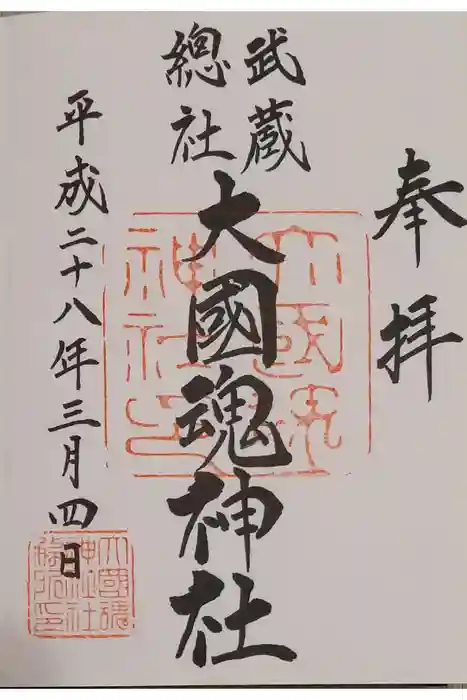 奉拝
武蔵
總社
大國魂神社
平成二十八年三月四日
大國魂
神社印
大國魂
神社